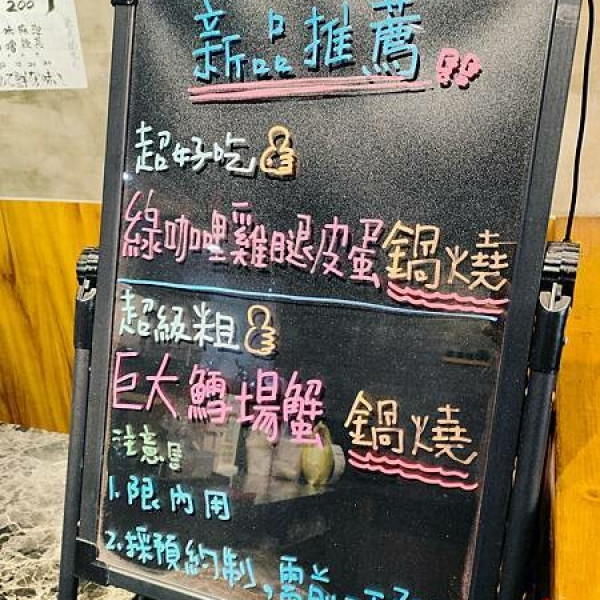 200
新品推薦!!
超好吃
綠咖哩雞腿皮蛋鍋燒
超級粗
巨大鱈場蟹 鍋燒
注意
1.限內用
2.採預約制,需前一